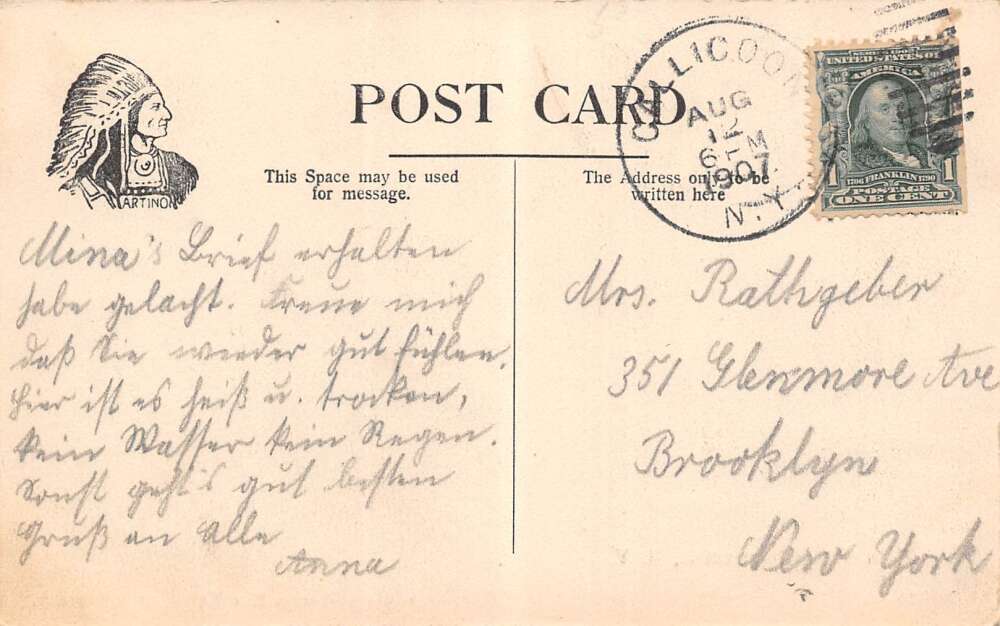 POST CARD
This Space may be used
for message.
The Address only to be
written here
ARTINO
CALLICOON
AUG
12
6 PM
1907
N.Y.
SERIES 1902
UNITED STATES OF
AMERICA
1706 FRANKLIN 1790
1 1
POSTAGE
ONE CENT
Mina's Brief erhalten
habe gelacht. Freue mich
daß Sie wieder gut fühlen.
Hier ist es heiß u. trocken,
kein Wasser kein Regen.
Sonst geht's gut besten
Gruß an Alle
Anna
Mrs. Rathgeber
351 Glenmore Ave
Brooklyn
New York